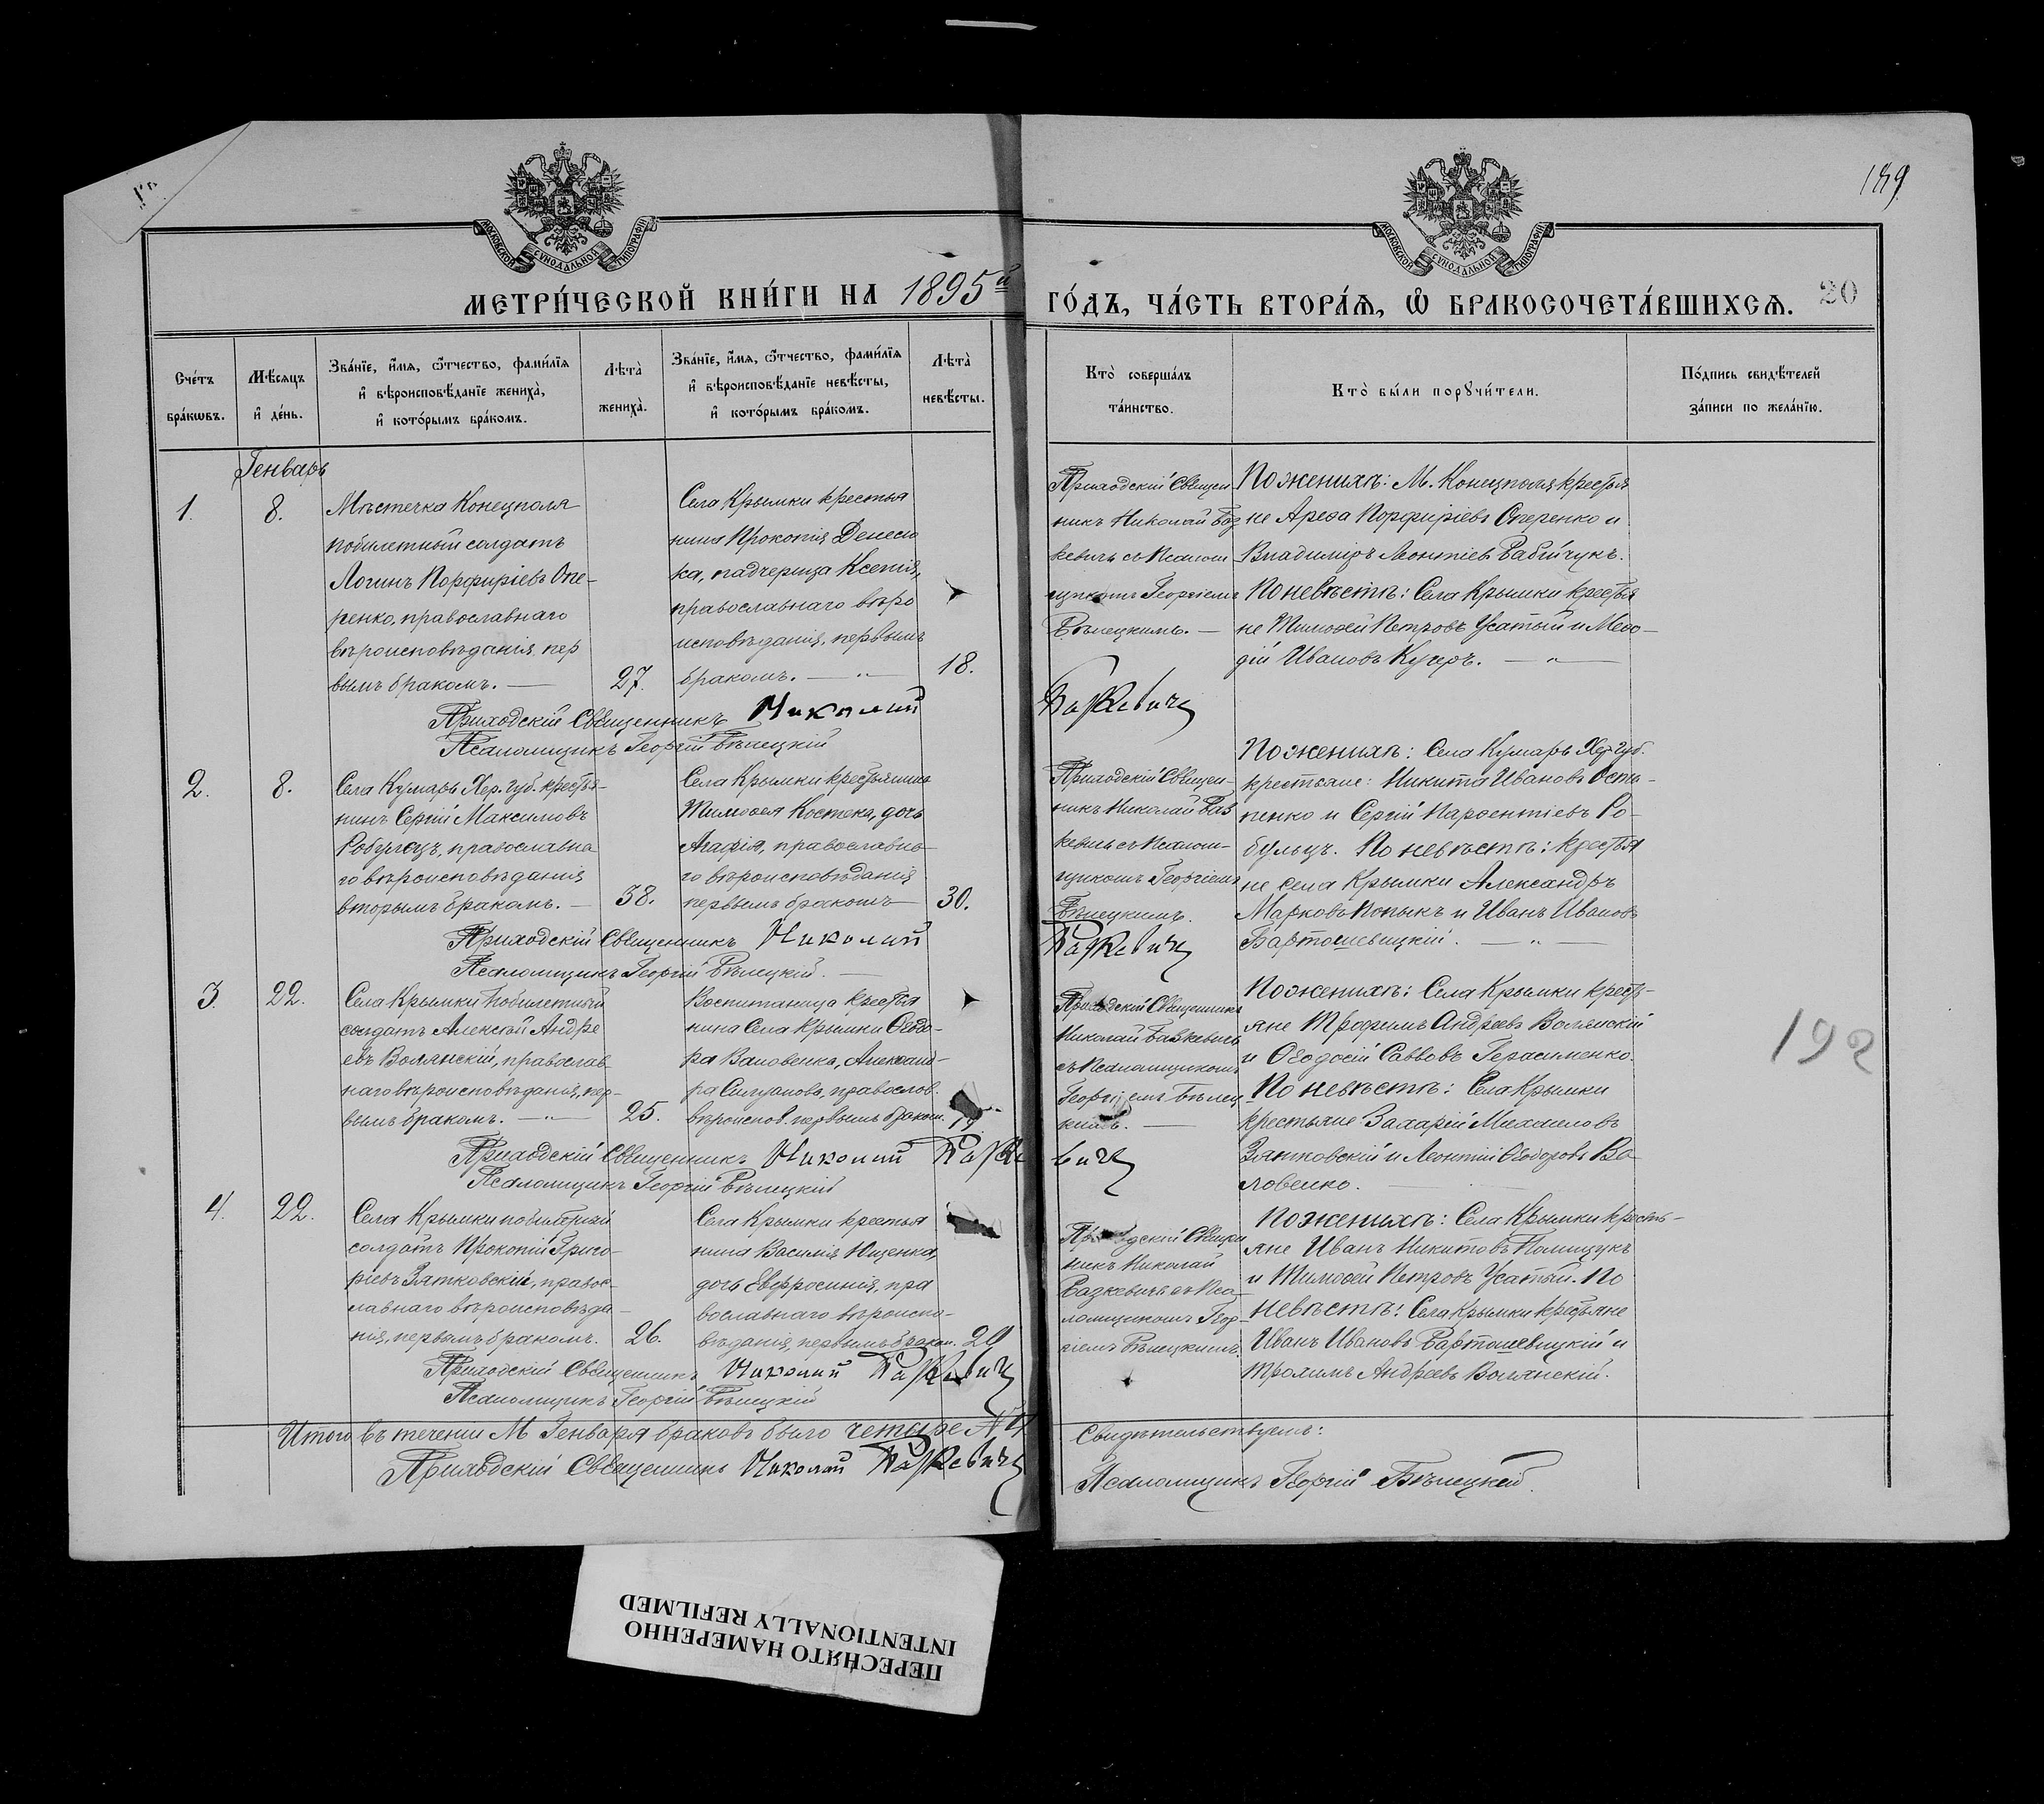 189
МОСКОВСКОЙ СѴНОДАЛЬНОЙ ТИПОГРАФІИ
МОСКОВСКОЙ СѴНОДАЛЬНОЙ ТИПОГРАФІИ
МЕТРИ́ЧЕСКОЙ КНИ́ГИ НА 1895й
ГО́ДЪ, ЧА́СТЬ ВТОРА́Я, Ѡ БРАКОСОЧЕТА́ВШИХСЯ. 20
Сче́тъ бра́кѡвъ.
Мѣ́сяцъ и҆ де́нь.
Зва́нїе, и҆́мя, ѻ҆́тчество, фами́лїя
и҆ вѣроисповѣ́данїе жениха̀,
и҆ кото́рымъ бра́комъ.
Лѣта̀ жениха̀.
Зва́нїе, и҆́мя, ѻ҆́тчество, фами́лїя
и҆ вѣроисповѣ́данїе невѣ́сты,
и҆ кото́рымъ бра́комъ.
Лѣта̀ невѣ́сты.
Кто̀ соверша́лъ та́инство.
Кто̀ бы́ли порꙋчи́тели.
По́дпись свидѣ́телей за́писи по жела́нїю.
Генварь
1. 8.
Мѣстечка Конецполя
побилетный солдатъ
Логинъ Порфиріевъ Опе-
ренко, православнаго
вѣроисповѣданія, пер
вымъ бракомъ. — 27.
Села Крымки крестья
нина Прокопія Денесю
ка, падчерица Ксенія,
православнаго вѣро
исповѣданія, первымъ
бракомъ. — „ — 18.
Приходскій Священ
никъ Николай Баз
кевичъ съ Псалом
щикомъ Георгіемъ
Бѣлецкимъ. —
По женихѣ: М. Конецполя крестья
не Арефа Порфиріевъ Оперенко и
Владиміръ Леонтіевъ Бабійчукъ.
По невѣстѣ: Села Крымки крестья
не Тимофей Петровъ Усатый и Мефо-
дій Ивановъ Кучеръ. — „ —
Приходскій Священникъ Николай Базкевичъ
Псаломщикъ Георгій Бѣлецкій
2. 8.
Села Кумаръ Хер. губ. крестья-
нинъ Сергій Максимовъ
Робулецъ, православна
го вѣроисповѣданія
вторымъ бракомъ. — 38.
Села Крымки крестьянина
Тимофея Костека, дочь
Агафія, православна
го вѣроисповѣданія
первымъ бракомъ 30.
Приходскій Священ-
никъ Николай Баз
кевичъ съ Псалом-
щикомъ Георгіемъ
Бѣлецкимъ.
По женихѣ: Села Кумаръ Хер. губ.
крестьяне: Никита Ивановъ Осты-
пенко и Сергій Парфентіевъ Ро-
бульцъ. По невѣстѣ: крестья
не села Крымки Александръ
Марковъ Попыкъ и Иванъ Ивановъ
Бартошевицкій. — „ —
Приходскій Священникъ Николай Базкевичъ
Псаломщикъ Георгій Бѣлецкій. —
3. 22.
Села Крымки побилетный
солдатъ Алексѣй Андре
евъ Волянскій, православ
наго вѣроисповѣданія, пер-
вымъ бракомъ. — „ — 25.
Воспитаница крестья
нина Села Крымки Ѳеодо-
ра Валовенка, Александ-
ра Силуанова, православ.
вѣроиспов. первымъ браком. 19
Приходскій Священникъ
Николай Базкевичъ
съ Псаломщикомъ
Георгіемъ Бѣлец
кимъ. —
По женихѣ: Села Крымки кресть-
яне Трофимъ Андреевъ Волянскій
и Ѳеодосій Саввовъ Герасименко.
По невѣстѣ: Села Крымки
крестьяне Захарій Михаиловъ
Зятковскій и Леонтій Ѳеодоровъ Ва
ловенко. —
192
Приходскій Священникъ Николай Базкевичъ
Псаломщикъ Георгій Бѣлецкій
4. 22.
Села Крымки побилетный
солдатъ Прокопій Григо-
ріевъ Зятковскій, правос-
лавнаго вѣроисповѣда-
нія, первымъ бракомъ. 26.
Села Крымки крестья
нина Василія Ющенка,
дочь Евфросинія, пра
вославнаго вѣроиспо-
вѣданія, первымъ браком. 20
Приходскій Священ
никъ Николай
Базкевичъ съ Пса
ломщикомъ Геор-
гіемъ Бѣлецкимъ.
По женихѣ: Села Крымки кресть-
яне Иванъ Никитовъ Полищукъ
и Тимофей Петровъ Усатый. По
невѣстѣ: Села Крымки крестьяне
Иванъ Ивановъ Бартошевицкій и
Трофимъ Андреевъ Волянскій.
Приходскій Священникъ Николай Базкевичъ
Псаломщикъ Георгій Бѣлецкій
Итого въ теченіи М. Генваря браковъ было четыре № 4
Приходскій Священникъ Николай Базкевичъ
Свидѣтельствуемъ:
Псаломщикъ Георгій Бѣлецкій.
ПЕРЕСНЯТО НАМЕРЕННО
INTENTIONALLY REFILMED